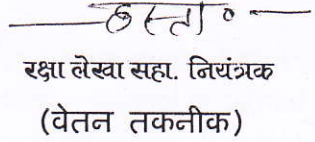 हस्ता०
रक्षा लेखा सहा. नियंत्रक
(वेतन तकनीक)